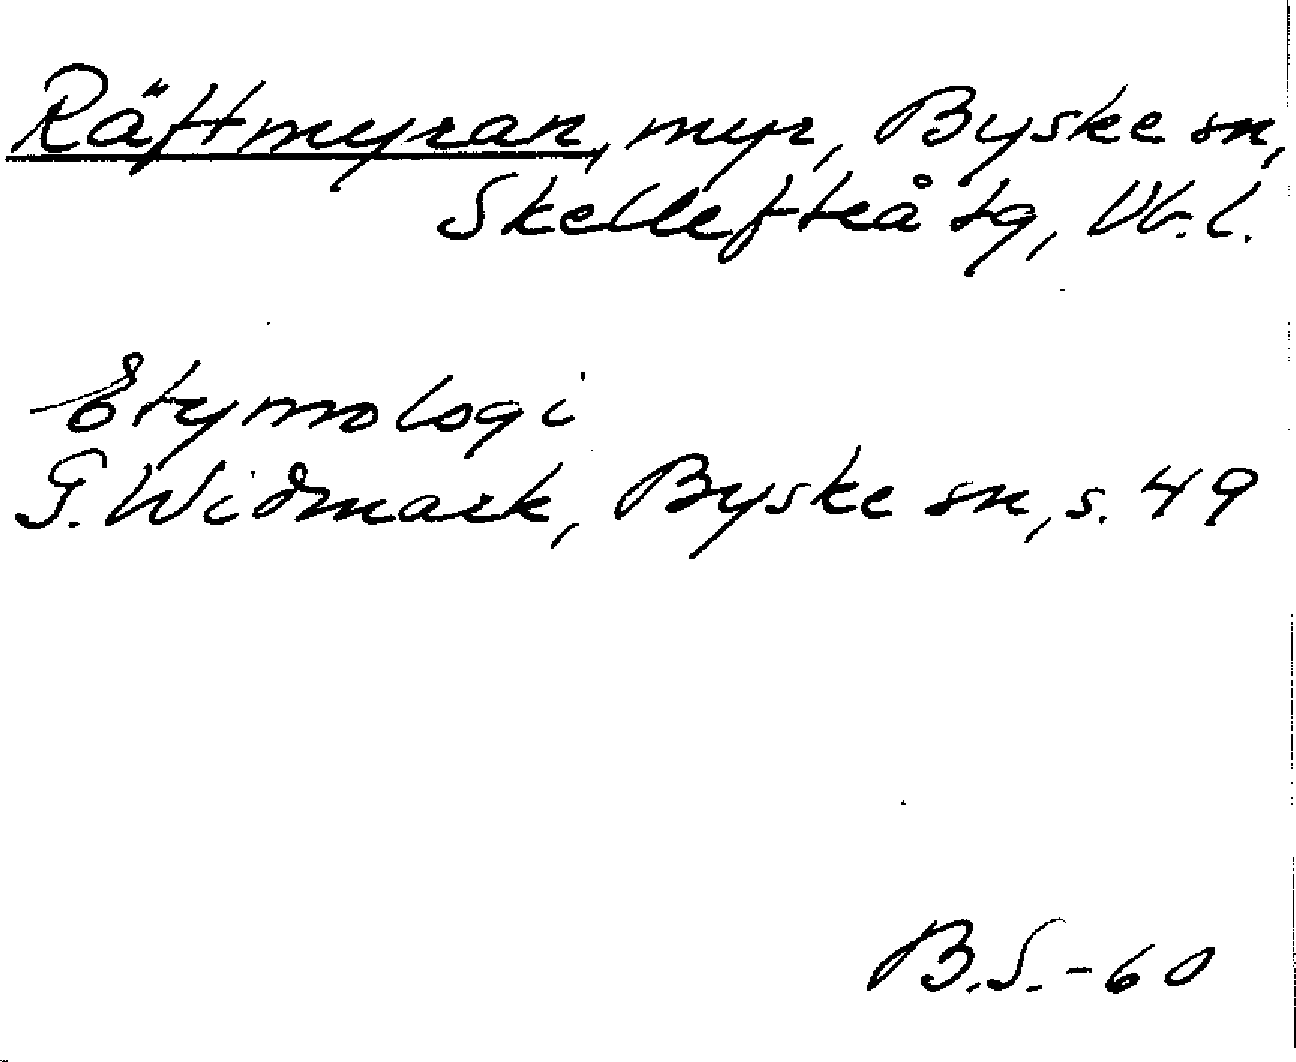 Räftmyran, myr, Byske sn,
Skellefteå tg, Vb. l.
Etymologi
G. Widmark, Byske sn, s. 49
B.S.-60